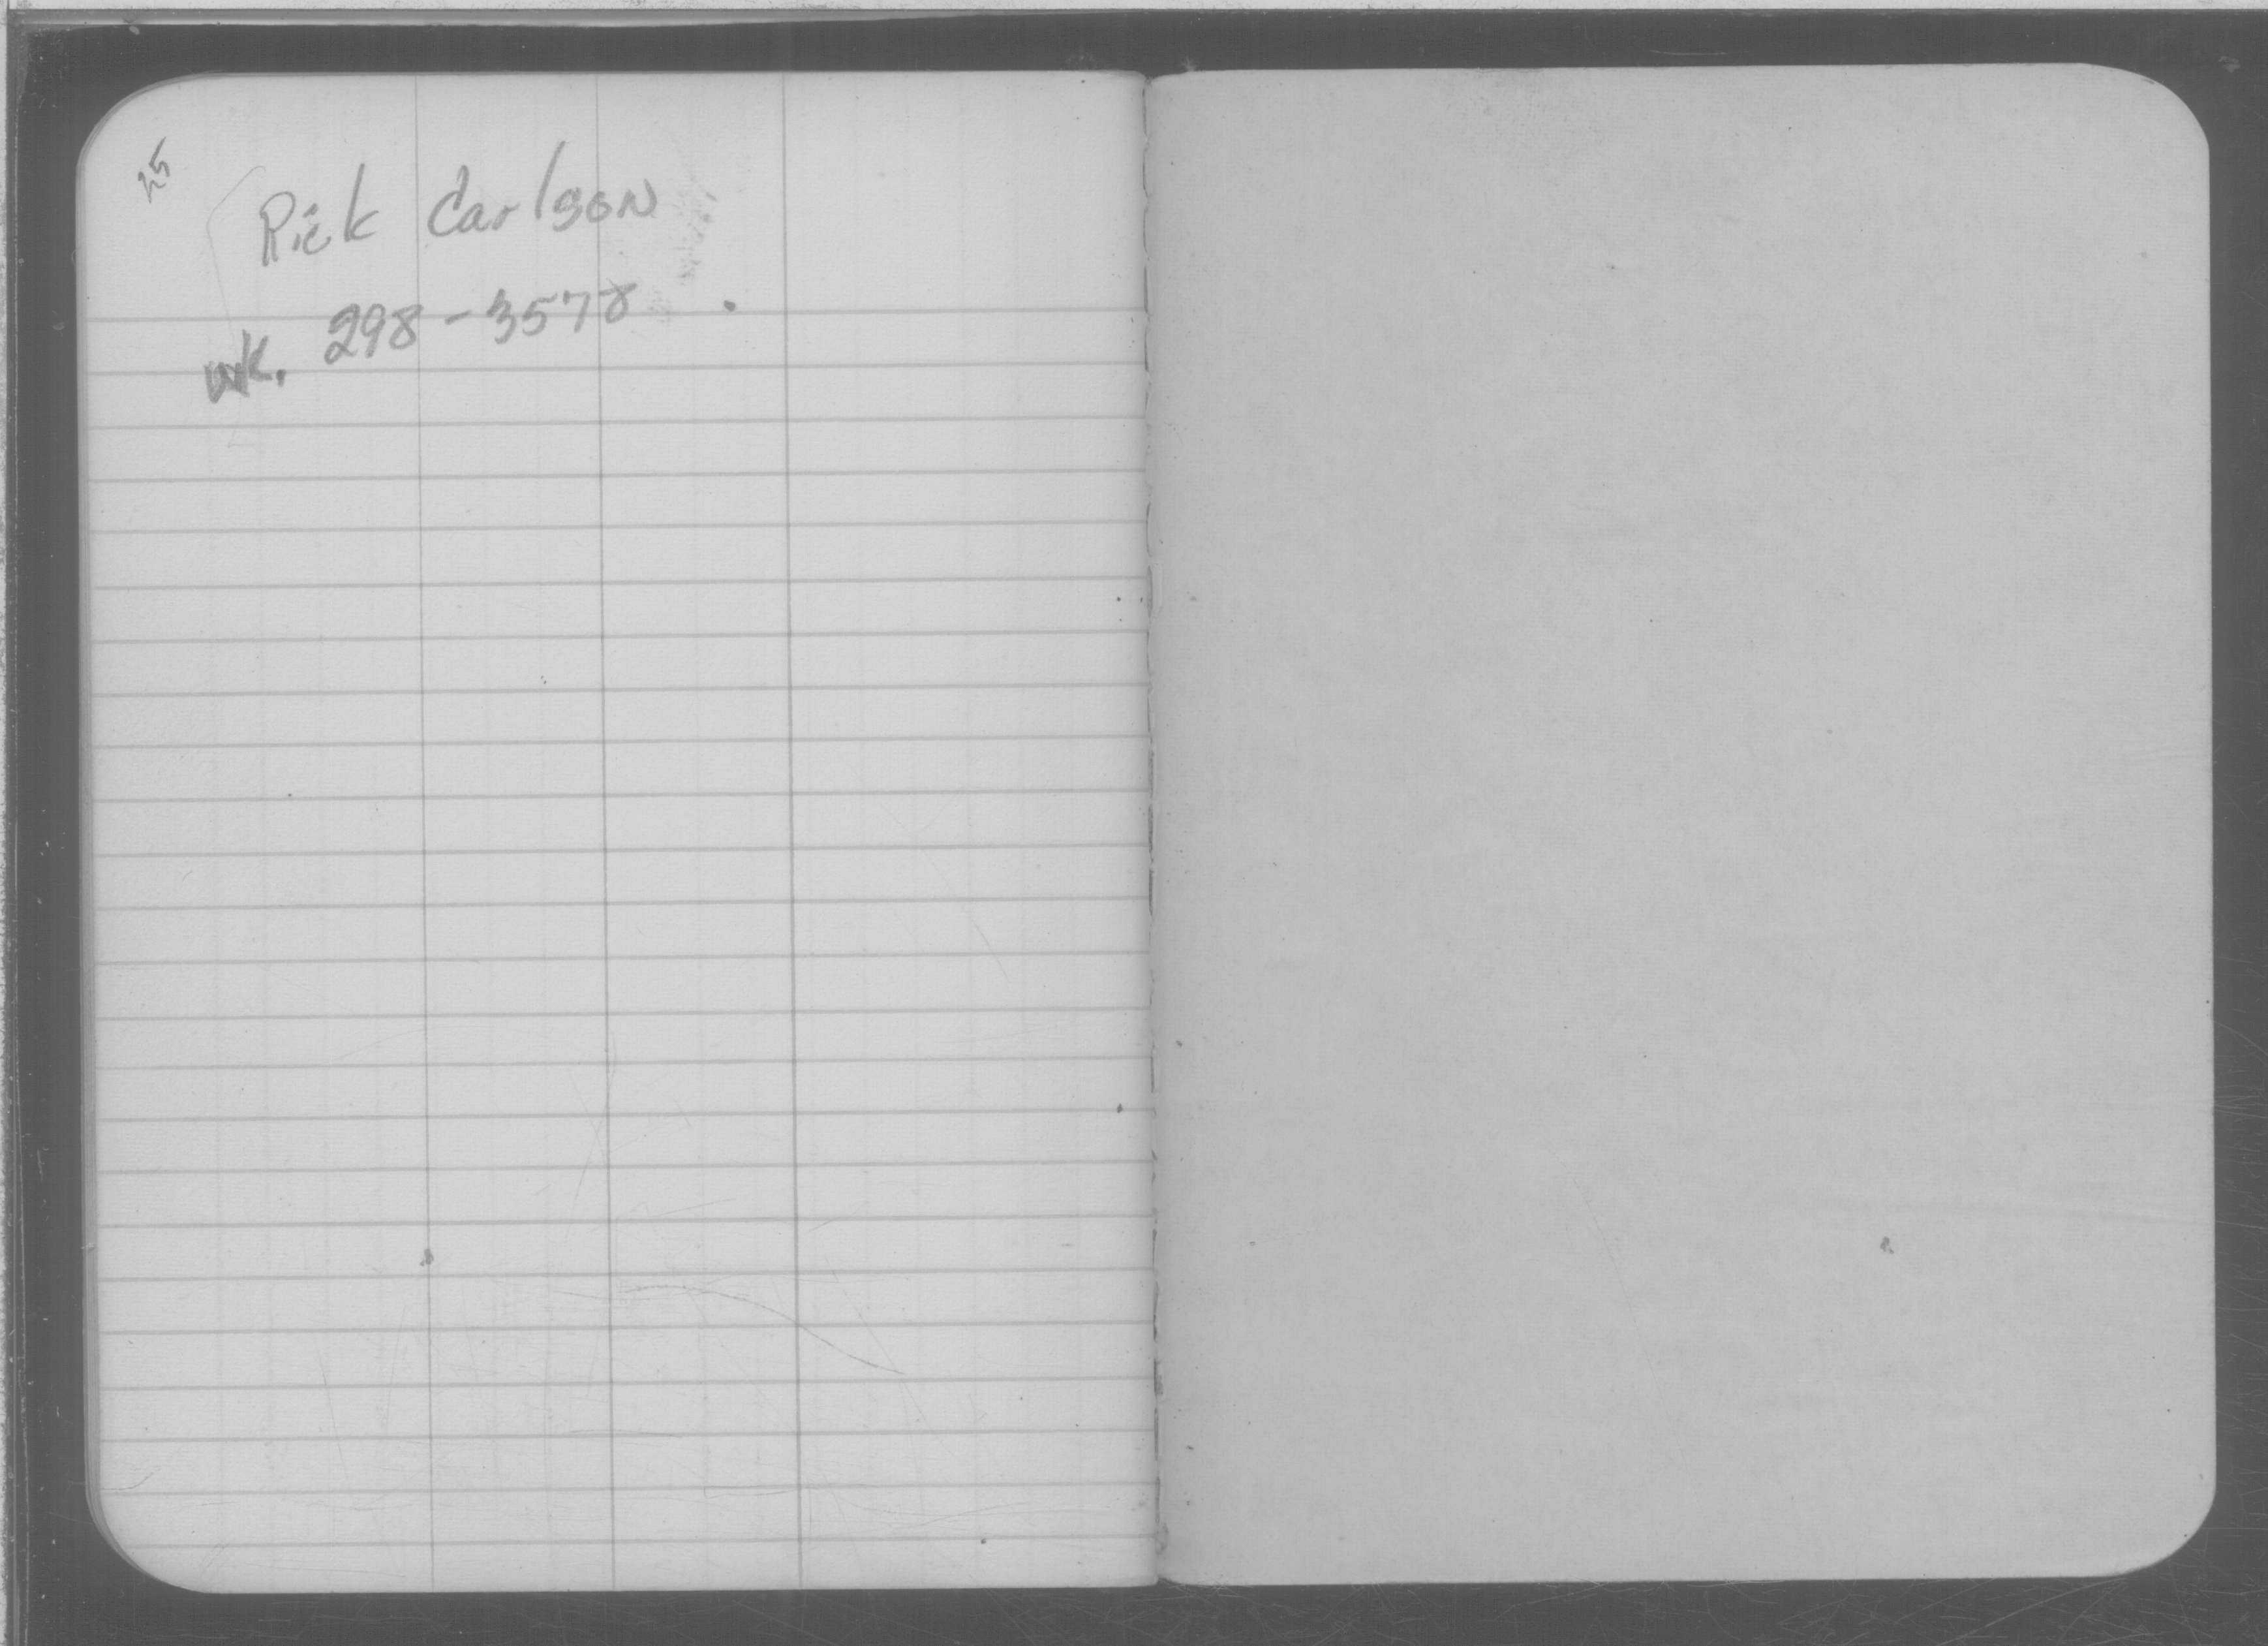 25
Rick Carlson
wk. 298-3578